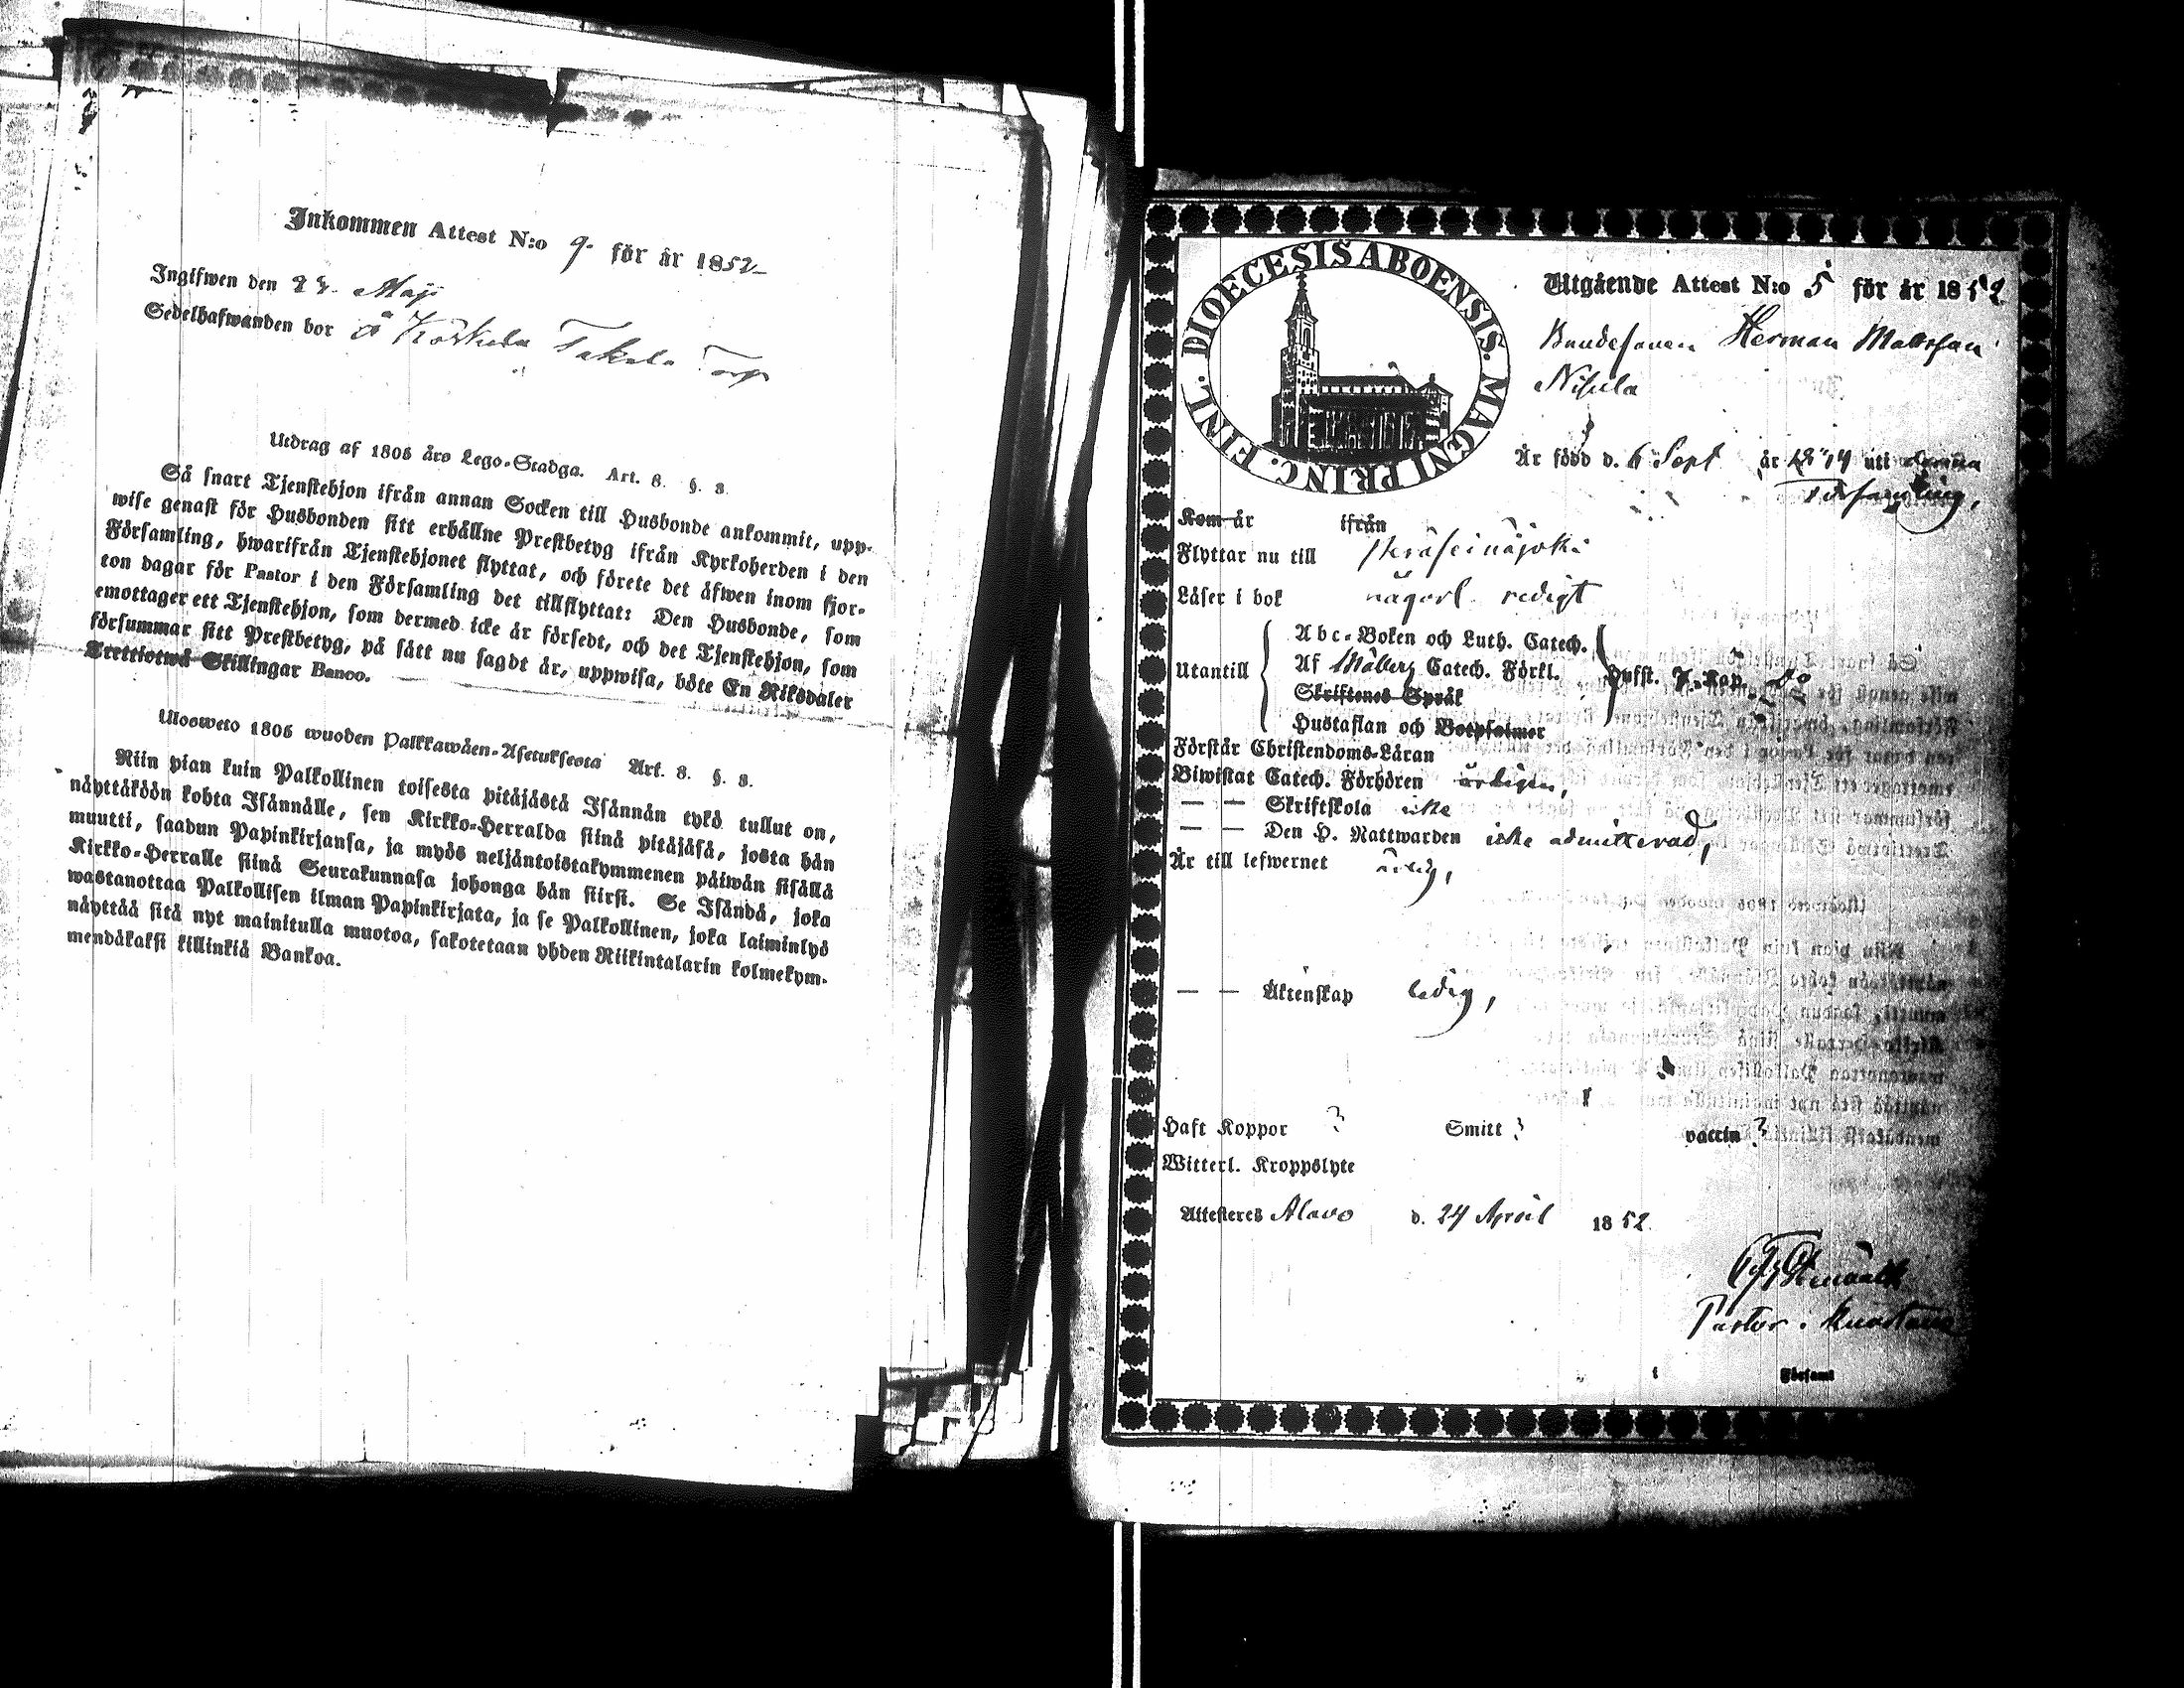 Inkommen Attest N:o 9. för år 1852
Ingifwen den 23. Maji
Sedelhafwanden bor å Takala Torp
Utdrag af 1805 års Lego-Stadga. Art. 8. §. 8.
Så snart Tjenstehjon ifrån annan Socken till Husbonde ankommit, upp-
wise genast för Husbonden sitt erhållne Prestbetyg ifrån Kyrkoherden i den
Församling, hwarifrån Tjenstehjonet flyttat, och förete det äfwen inom fjor-
ton dagar för Pastor i den Församling det tillflyttat: Den Husbonde, som
emottager ett Tjenstehjon, som dermed icke är försedt, och det Tjenstehjon, som
försummar sitt Prestbetyg, på sätt nu sagdt är, uppwisa, böte En Riksdaler
Trettiotwå Skillingar Banco.
Ulosweto 1805 wuoden Palkkawäen-Asetuksesta Art. 8. §. 8.
Niin pian kuin Palkollinen toisesta pitäjästä Isännän tykö tullut on,
näyttäköön kohta Isännälle, sen Kirkko-Herralda siinä pitäjäsä, josta hän
muutti, saadun Papinkirjansa, ja myös neljäntoistakymmenen päiwän sisällä
Kirkko-Herralle siinä Seurakunnasa johonga hän siirsi. Se Isändä, joka
wastanottaa Palkollisen ilman Papinkirjata, ja se Palkollinen, joka laiminlyö
näyttää sitä nyt mainitulla muotoa, sakotetaan yhden Riikintalarin kolmekym-
mendäkaksi killinkiä Bankoa.
DIOECESIS ABOENSIS. MAGNI PRINC. FINL.
Utgående Attest N:o 5 för år 1852
Bondesonen Herman Mattsson
Nisula
Är född d. 6 Sept år 1814 uti denna
Församling,
Kom år ifrån
Flyttar nu till Peräseinäjoki
Läser i bok någorl. redigt
Utantill
Abc-Boken och Luth. Catech.
Af Möberg Catech. Förkl.
Skriftenes Språk
Hustaflan och Botpsalmer
Förstår Christendoms-Läran
Biwistat Catech. Förhören ärligen,
— — Skriftskola icke
— — Den H. Nattwarden icke admitterad,
Är till lefwernet ärlig,
— — Äktenskap ledig,
Haft Koppor ? Smitt ? vaccin ?
Witterl. Kroppslyte
Attesteres Alavo d. 24 April 1852
Pastor i
i Församl